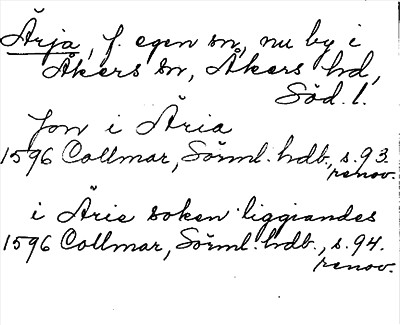 Ärja, f. egen sn, nu by i
Åkers sn, Åkers hd,
Söd. l.
Jon i Äria
1596 Collmar, Sörml. hdb., s. 93.
renov.
i Ärie soken liggiandes
1596 Collmar, Sörml. hdb., s. 94.
renov.